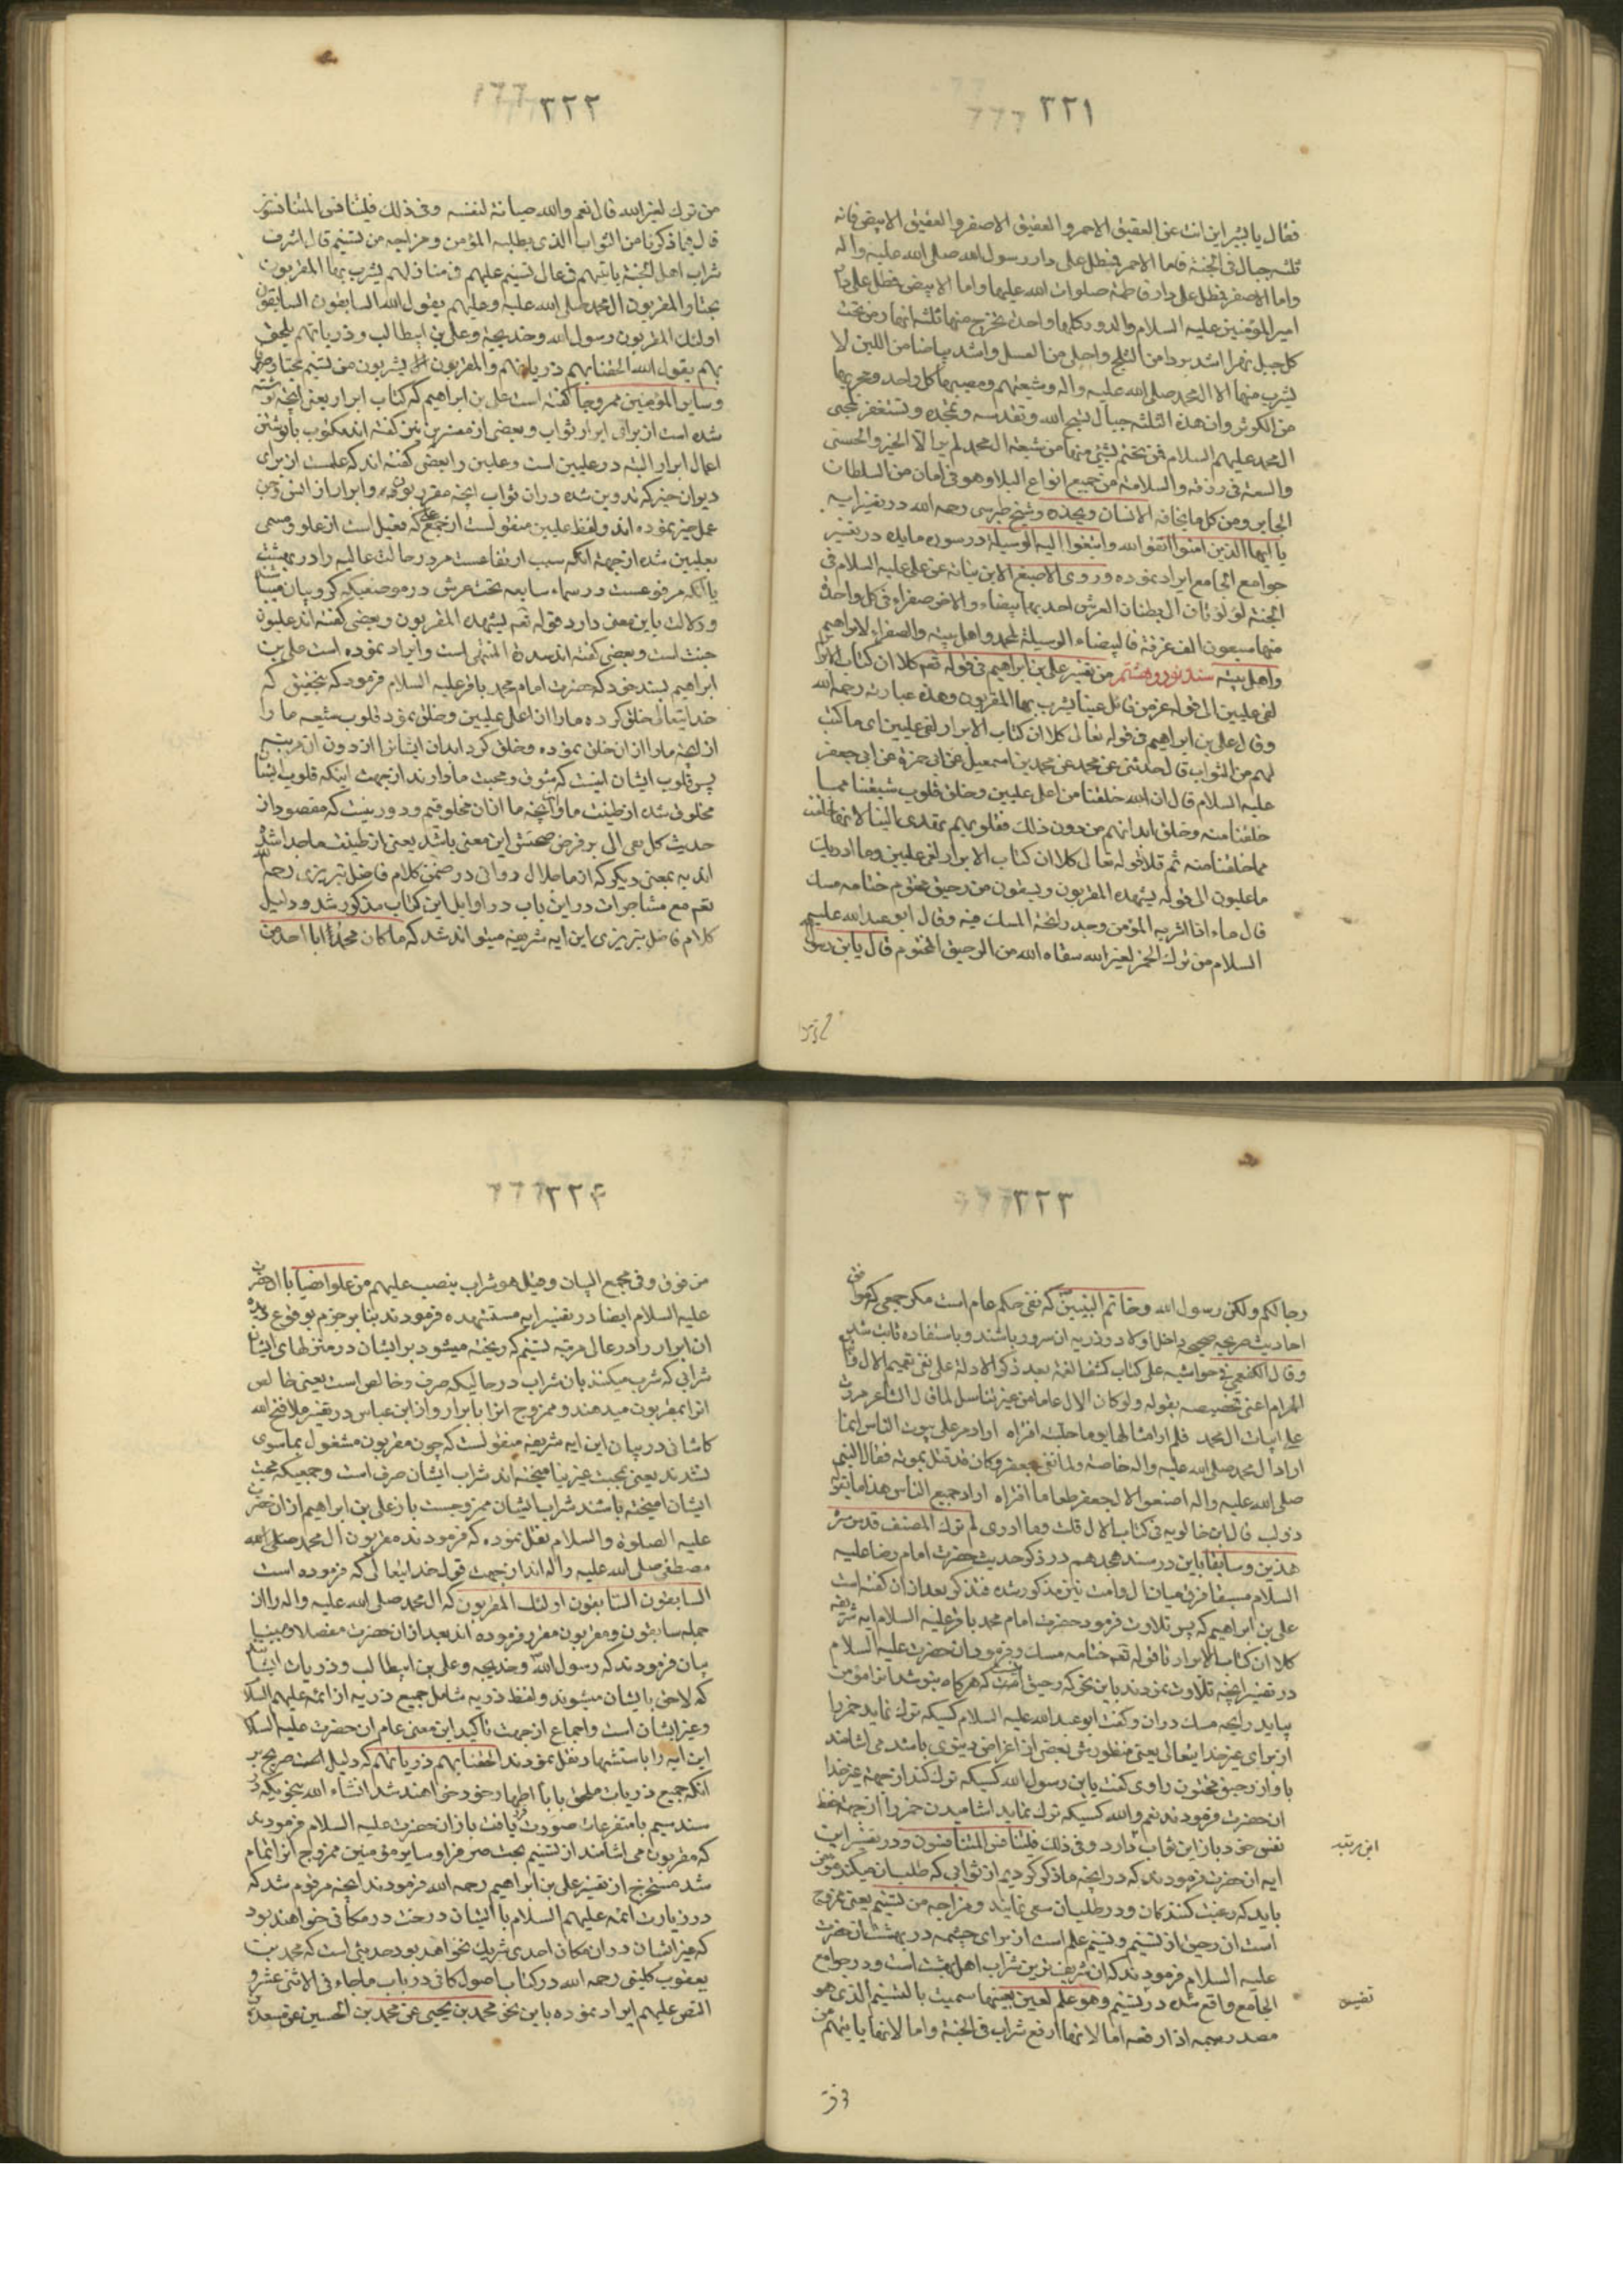 ٣٢١
فقال یا بشیر این انت عن العقیق الاحمر و العقیق الاصفر و العقیق الابیض فانه
ثلثه جبال فی الجنة فاما الاحمر فیظل علی دار رسول الله صلی الله علیه واله
واما الاصفر فیظل علی دار فاطمة صلوات الله علیها واما الابیض فیظل علی دار
امیر المؤمنین علیه السلام والدور کلها واحدة یخرج منها ثلثه انهار من تحت
کل جبل نهر اشد بردا من الثلج واحلی من العسل واشد بیاضا من اللبن لا
یشرب منها الا ال محمد صلی الله علیه واله وشیعتهم ومصبها کل واحد ومجریها
من الکوثر وان هذه الثلثه جبال تسبح الله وتقدسه وتمجده وتستغفر لمحبی
ال محمد علیهم السلام فمن تختم بشیء منها من شیعة ال محمد لم یر الا الخیر والحسنی
والسعة فی رزقه والسلامة من جمیع انواع البلاء وهو فی امان من السلطان
الجایر ومن کل ما یخافه الانسان ویحذره وشیخ طبرسی رحمه الله در تفسیر ایه
یا ایها الذین امنوا اتقوا الله وابتغوا الیه الوسیلة در سوره مایده در تفسیر
جوامع الجامع ایراد نموده وروی الاصبغ الابن نباته عن علی علیه السلام فی
الجنة لؤلؤتان الی بطنان العرش احدیهما بیضاء والاخر صفراء فی کل واحدة
منهما سبعون الف غرفة فالبیضاء الوسیلة لمحمد واهل بیته والصفراء لابراهیم
واهل بیته سند نود و هشتم من تفسیر علی بن ابراهیم فی قوله تعم کلا ان کتاب الابرار
لفی علیین الی قوله عز من قائل عینا یشرب بها المقربون وهذه عبارته رحمه الله
وقال علی بن ابراهیم فی قوله تعالی کلا ان کتاب الابرار لفی علیین ای ما کتب
لهم من الثواب قال حدثنی عن محمد عن محمد بن اسمعیل عن ابی حمزة عن ابی جعفر
علیه السلام قال ان الله خلقنا من اعلی علیین وخلق قلوب شیعتنا مما
خلقنا منه وخلق ابدانهم من دون ذلک فقلوبهم تهوی الینا لانها خلقت
مما خلقنا منه ثم تلا قوله تعالی کلا ان کتاب الابرار لفی علیین وما ادریک
ما علیون الی قوله یشهده المقربون ویسقون من رحیق مختوم ختامه مسک
قال ماء اذا شربه المؤمن وجد رائحة المسک فیه وقال ابو عبد الله علیه
السلام من ترک الخمر لغیر الله سقاه الله من الرحیق المختوم قال یابن رسول الله
٣٢٢
من ترک لغیر الله قال نعم والله صیانة لنفسه وفی ذلک فلیتنافس المتنافسون
قال فیما ذکرنا من الثواب الذی یطلبه المؤمن ومزاجه من تسنیم قال اشرف
شراب اهل الجنة یاتیهم فی عال تسنیم علیهم فی منازلهم یشرب بها المقربون
بحتا والمقربون ال محمد صلی الله علیه وعلیهم یقول الله السابقون السابقون
اولئک المقربون رسول الله وخدیجة وعلی بن ابیطالب وذریاتهم یلحق
بهم یقول الله الحقنا بهم ذریاتهم والمقربون یشربون من تسنیم بحتا صرفا
وسایر المؤمنین ممزوجا کفته است علی بن ابراهیم که کتاب ابرار یعنی انچه نوشته
شده است از برای ابرار ثواب و بعضی از مفسرین نیز کفته اند مکتوب یا نوشتن
اعمال ابرار البته در علیین است و علیین را بعضی کفته اند که علمست از برای
دیوان خیر که تدوین شده در ان ثواب انچه مقربون و ابرار از انس و جن
عمل خیر نموده اند و لفظ علیین منقولست از جمع علی که فعیل است از علو و مسمی
بعلیین شده از جهة انکه سبب ارتفاعست مردرجات عالیه را در بهشت
یا انکه مرفوعست در سماء سابعه تحت عرش در موضعیکه کروبیان میباشند
و دلالت باین معنی دارد قوله تعم یشهده المقربون و بعضی کفته اند علیون
جنت است و بعضی کفته اند سدرة المنتهی است و ایراد نموده است علی بن
ابراهیم بسند خود که حضرت امام محمد باقر علیه السلام فرمود که بتحقیق که
خدایتعالی خلق کرده ما را از اعلی علیین و خلق نمود قلوب شیعه ما را
از انچه ما را از ان خلق نموده و خلق کرد ابدان ایشانرا از دون ان مرتبه
پس قلوب ایشان اینست که شوق و محبت ما دارند از جهت اینکه قلوب ایشان
مخلوق شده از طینت ما و انچه ما از ان مخلوقیم و دور نیست که مقصود از
حدیث کل تقی الی بر فرض صحتش این معنی باشد یعنی از طینت ما جدا شده
اند نه بمعنی دیکر که از ما جلال دوانی در ضمن کلام فاضل تبریزی رحمه الله
تعم مع مشاجرات در این باب در اوایل این کتاب مذکور شد و دلیل
کلام فاضل تبریزی این ایه شریفه میتواند شد که ما کان محمد ابا احد من
٣٢٣
رجالکم ولکن رسول الله وخاتم النبیین که نفی حکم عام است مکر جمعی که بموافق
احادیث صریحه صحیحه داخل اولاد و ذریه ان سرور باشند و باستفاده ثابت شده
وقال الکفعمی فی حواشیه علی کتاب کشف الغمة بعد ذکر الادلة علی نفی تعمیم الال فان
المرام اعنی تخصیصه بقوله ولو کان الال عاما من غیر تناسل لما قال الشاعر مررت
علی ابیات ال محمد فلم ار امثالها یوم حلت افتراه اراد مر علی بیوت الناس انما
اراد ال محمد صلی الله علیه واله خاصة ولما نعی جعفر وکان قد قتل بموته فقال النبی
صلی الله علیه واله اصنعوا لال جعفر طعاما افتراه اراد جمیع الناس هذا ما یقوله
ذو لب قال ابن خالویه فی کتاب الال قلت وما ادری لم ترک المصنف قدس سره
هذین و سابقا باین در سند هجدهم در ذکر حدیث حضرت امام رضا علیه
السلام مسبقا فرق میان ال و امت نیز مذکور شده فتذکر بعد از ان کفته است
علی بن ابراهیم که پس تلاوت فرمود حضرت امام محمد باقر علیه السلام ایه شریفه
کلا ان کتاب الابرار تا قوله تعم ختامه مسک و فرمود ان حضرت علیه السلام
در تفسیر انچه تلاوت نمودند باین نحو که رحیق ابیست که هر کاه بنوشد انرا مؤمن
بیابد رایحه مسک در ان و کفت ابو عبد الله علیه السلام کسیکه ترک نماید خمر را
از برای غیر خدایتعالی یعنی منظورش بعضی از اغراض دنیوی باشد می اشامند
باو از رحیق مختون راوی کفت یابن رسول الله کسیکه ترک کند از جهة غیر خدا
ان حضرت فرمودند نعم والله کسیکه ترک نماید اشامیدن خمر را از جهة حفظ
نفس خود باز این ثواب دارد وفی ذلک فلیتنافس المتنافسون و در تفسیر این
ایه ان حضرت فرمودند که در انچه ما ذکر کردیم از ثوابی که طلب ان میکند مؤمن
باید که رغبت کنند کان و در طلب ان سعی نمایند ومزاجه من تسنیم یعنی ممزوج
است ان رحیق از تسنیم و تسنیم علم است از برای چشمه در بهشت ان حضرت
علیه السلام فرمودند که ان شریف ترین شراب اهل بهشت است و در جوامع
الجامع واقع شده در تسنیم وهو علم لعین بعینها سمیت بالتسنیم الذی هو
مصدر سنمه اذا رفعه اما لانها ارفع شراب فی الجنة واما لانها یاتیهم من
٣٢٤
من فوق وفی مجمع البیان وقیل هو شراب ینصب علیهم من علو انصبابا ان حضرت
علیه السلام ایضا در تفسیر ایه مستشهده فرمودند بنا بر جزم بوقوع
ان ابرار را در عال مرتبه تسنیم که ریخته میشود بر ایشان در منزلهای ایشان
شرابی که شرب میکنند بان شراب در حالیکه صرف و خالص است یعنی خالص
انرا بمقربون میدهند و ممزوج انرا بابرار و از ابن عباس در تفسیر ملا فتح الله
کاشانی در بیان این ایه شریفه منقولست که چون مقربون مشغول بما سوی
نشدند یعنی بمحبت غیر نیامیخته اند شراب ایشان صرف است و جمعیکه محبت
ایشان امیخته باشند شراب ایشان ممزوجست باز علی بن ابراهیم از ان حضرت
علیه الصلوة والسلام نقل نموده که فرمودند مقربون ال محمد
مصطفی صلی الله علیه واله اند از جهت قول خدایتعالی که فرموده است
السابقون السابقون اولئک المقربون که ال محمد صلی الله علیه واله را از ان
جمله سابقون و مقربون مقرر فرموده اند بعد از ان حضرت مفصلا و مبینا
بیان فرمودند که رسول الله و خدیجه و علی بن ابیطالب و ذریات ایشان
که لاحق بایشان میشوند و لفظ ذریه شامل جمیع ذریه از ائمه علیهم السلام
و غیر ایشان است و اجماع از جهت تاکید این معنی عام ان حضرت علیه السلام
این ایه را باستشهاد نقل نمودند الحقنا بهم ذریاتهم که دلیل است صریح بر
انکه جمیع ذریات ملحق بابا اطهار خود خواهند شد انشاء الله بنحویکه در
سند سیم با متفرعات صورت یافت باز ان حضرت علیه السلام فرمودند
که مقربون می اشامند از تسنیم بحت صرفرا و سایر مؤمنین ممزوج انرا تمام
شد مستخرج از تفسیر علی بن ابراهیم رحمه الله فرمودند انچه مرقوم شد که
در زیارت ائمه علیهم السلام با ایشان درجت در مکانی خواهند بود
که غیر ایشان در ان مکان احدی شریک نخواهد بود حدیثی است که محمد بن
یعقوب کلینی رحمه الله در کتاب اصول کافی در باب ما جاء فی الاثنی عشر و
النص علیهم ایراد نموده باین نحو محمد بن یحیی عن محمد بن الحسین عن مسعدة